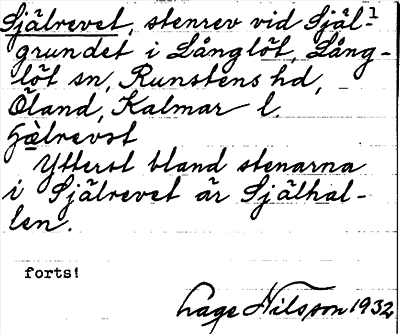 Själrevet, stenrev vid Själ-1
grundet i Långlöt, Lång-
löt sn, Runstens hd,
Öland, Kalmar l.
hälrevət
Ytterst bland stenarna
i Själrevet är Själhal-
len.
forts!
Lage Nilsson 1932